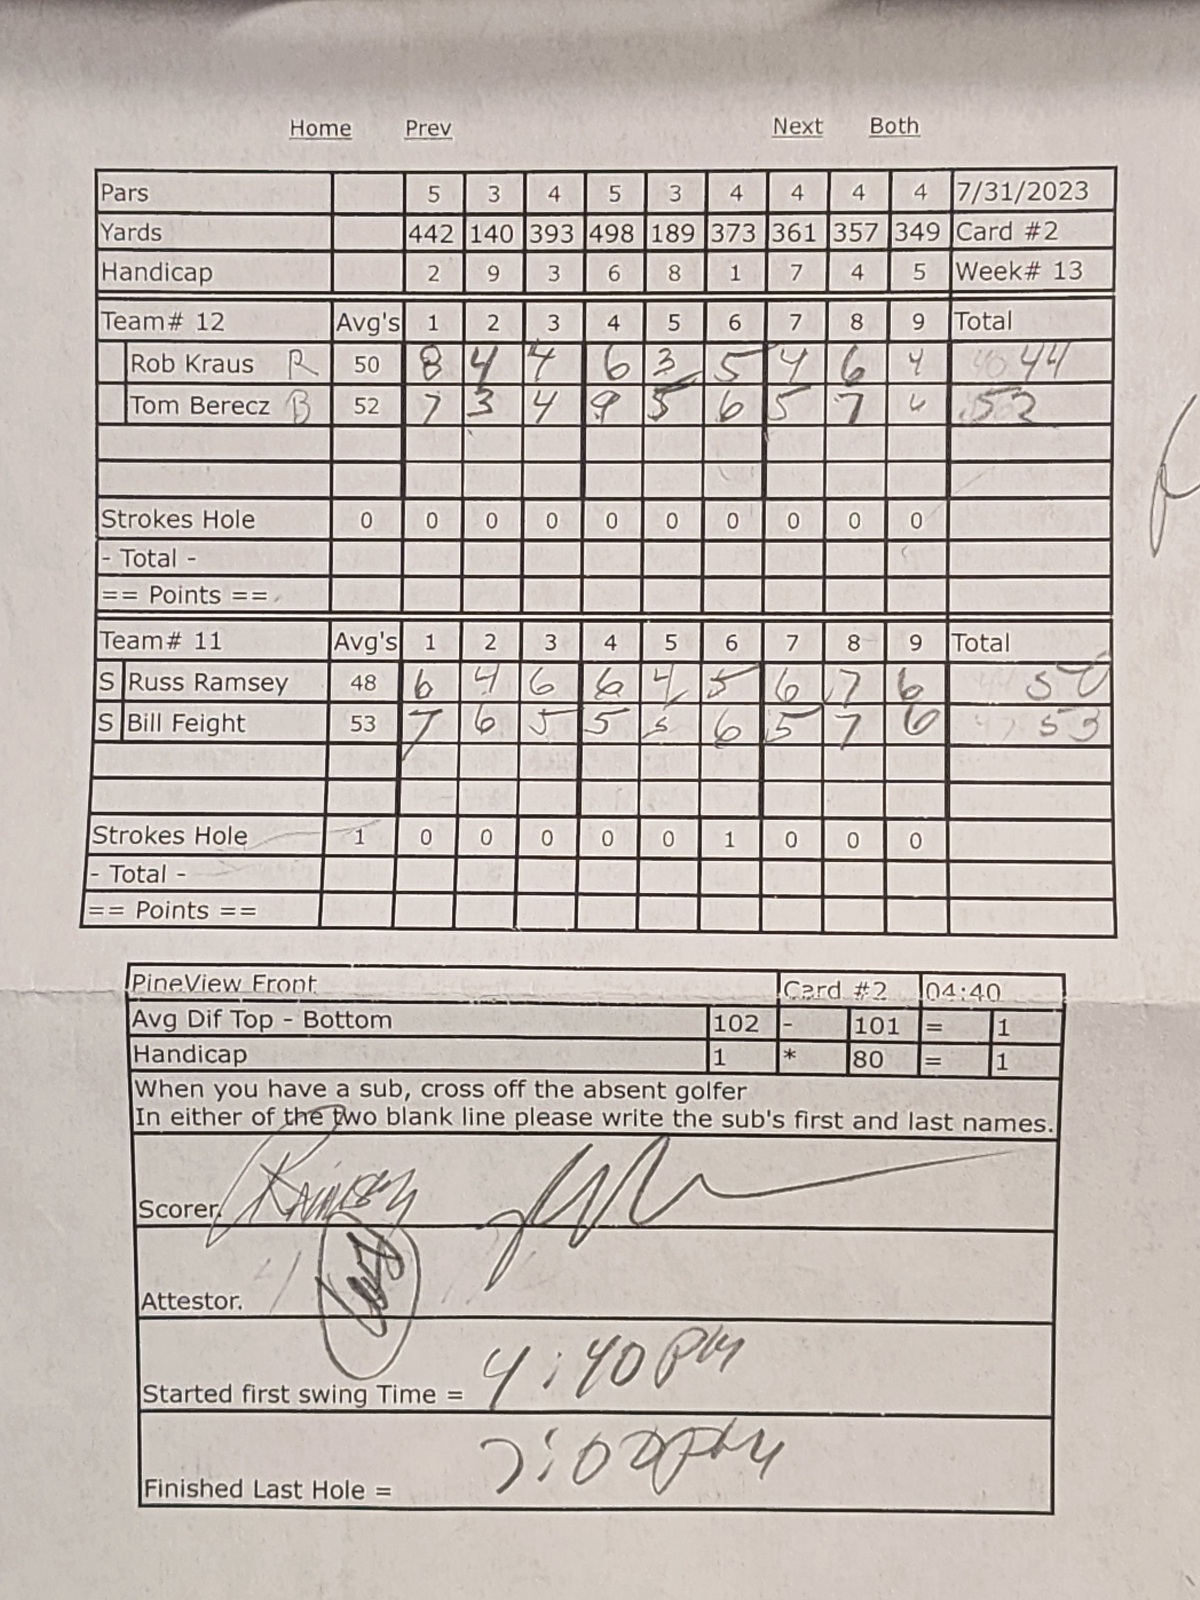 Home Prev Next Both
Pars 5 3 4 5 3 4 4 4 4 7/31/2023
Yards 442 140 393 498 189 373 361 357 349 Card #2
Handicap 2 9 3 6 8 1 7 4 5 Week# 13
Team# 12 Avg's 1 2 3 4 5 6 7 8 9 Total
Rob Kraus R 50 8 4 4 6 3 5 4 6 4 44
Tom Berecz B 52 7 3 4 9 5 6 5 7 6 52
Strokes Hole 0 0 0 0 0 0 0 0 0 0
- Total -
== Points ==
Team# 11 Avg's 1 2 3 4 5 6 7 8 9 Total
S Russ Ramsey 48 6 4 6 6 4 5 6 7 6 50
S Bill Feight 53 7 6 5 5 5 6 5 7 6 53
Strokes Hole 1 0 0 0 0 0 1 0 0 0
- Total -
== Points ==
PineView Front Card #2 04:40
Avg Dif Top - Bottom 102 - 101 = 1
Handicap 1 * 80 = 1
When you have a sub, cross off the absent golfer
In either of the two blank line please write the sub's first and last names.
Scorer. Ramsey
Attestor.
Started first swing Time = 4:40 PM
Finished Last Hole = 7:02 PM